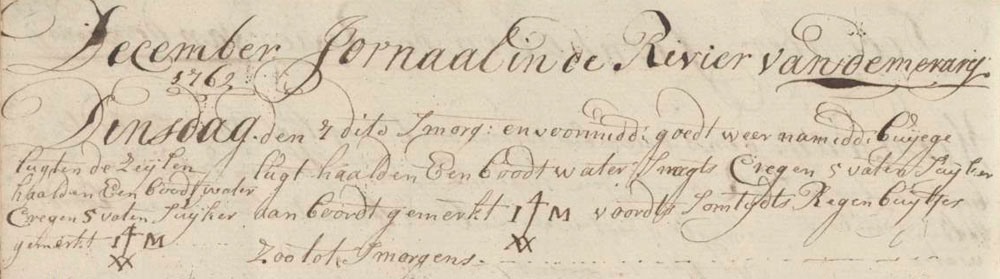 December Jornaal in de Rivier van demerarij
1762
Dinsdag den 7 dito Smorg: en voormidd: goedt weer namidd: buijege
lugt haalden Een boodt water Snagts Cregen 5 vaten Suijker
aan boordt gemerkt I M voordts Somtydts Regen buijtjes
Zoo tot Smorgens
lugt en de Zeijlen
haaldan Een boodt water
Cregen 5 vaten Suijker
gemerkt I M